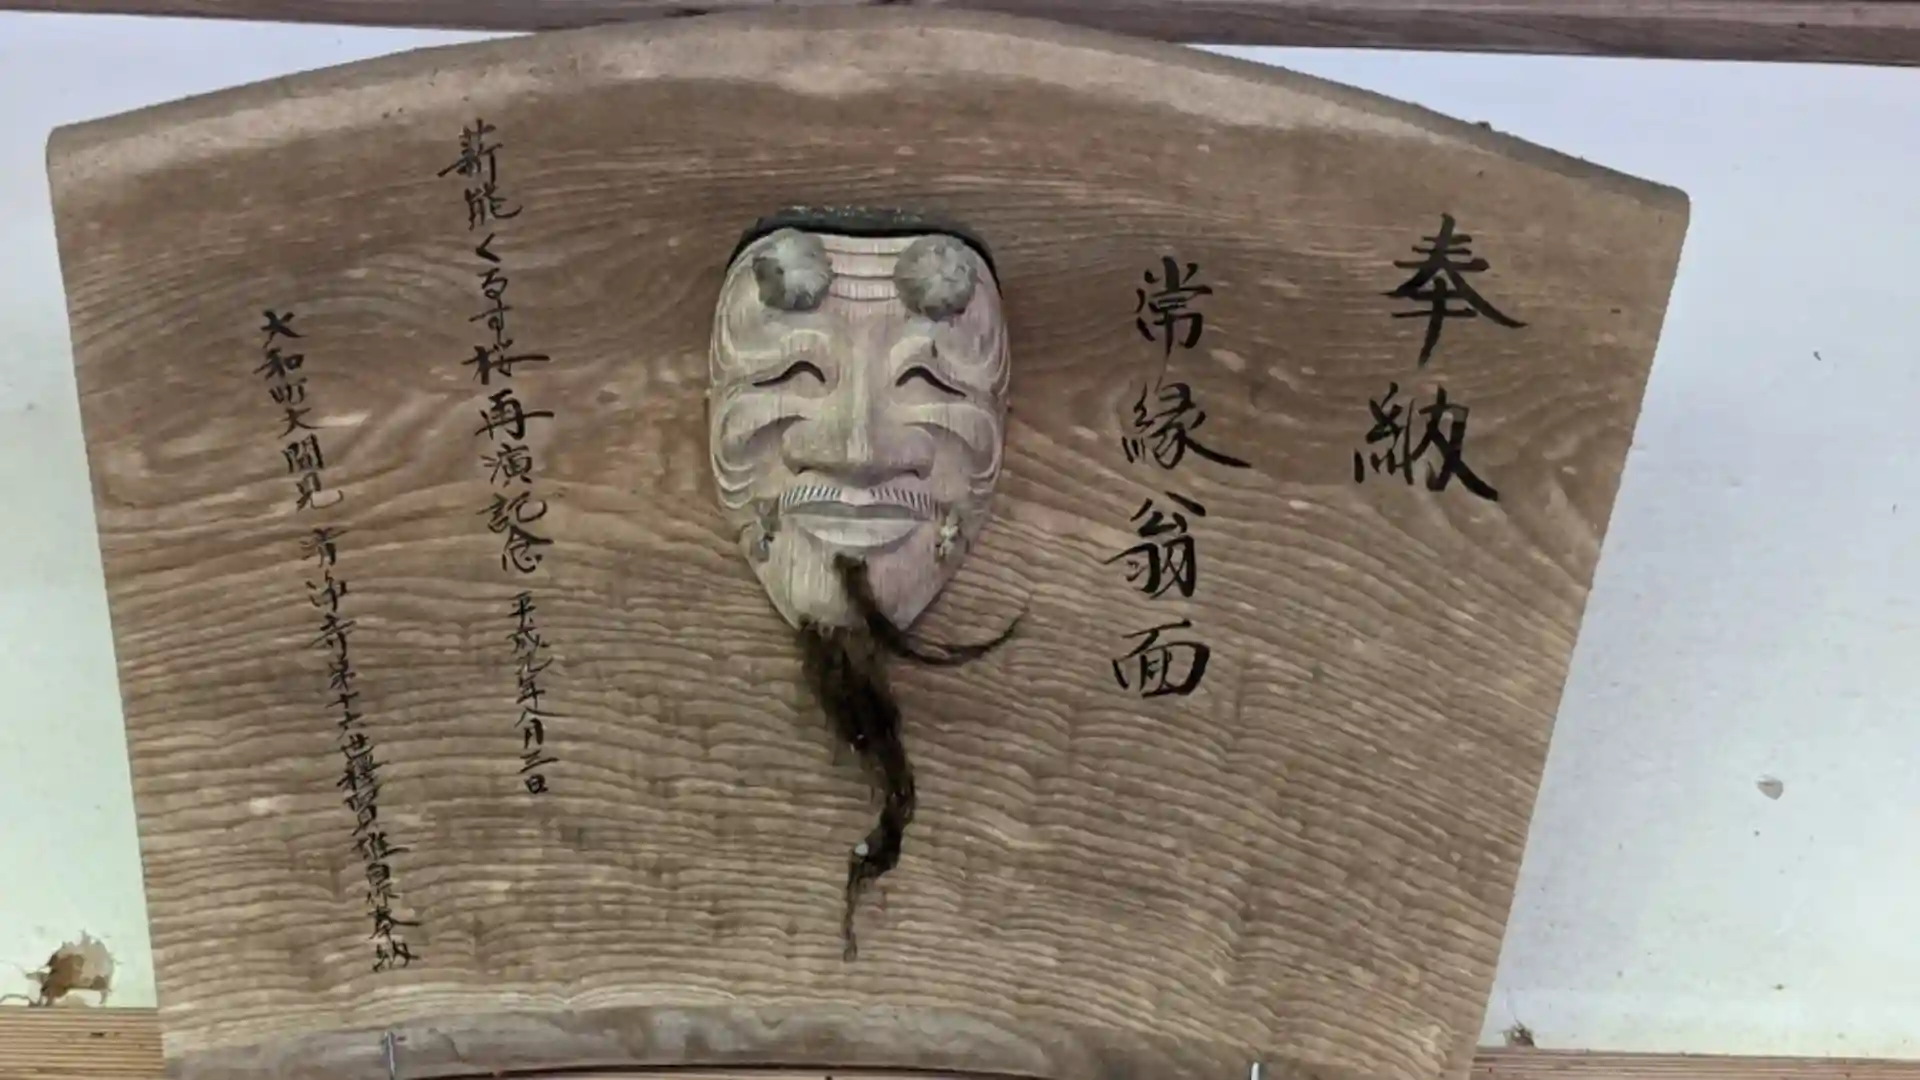 奉納
常縁翁面
薪能くるす桜再演記念 平成元年八月三日
大和町大間見 清浄寺第十六世釋賢雄自作奉納